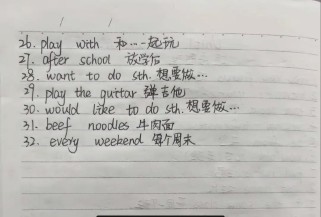 26. play with 和…一起玩
27. after school 放学后
28. want to do sth. 想要做…
29. play the guitar 弹吉他
30. would like to do sth. 想要做…
31. beef noodles 牛肉面
32. every weekend 每个周末